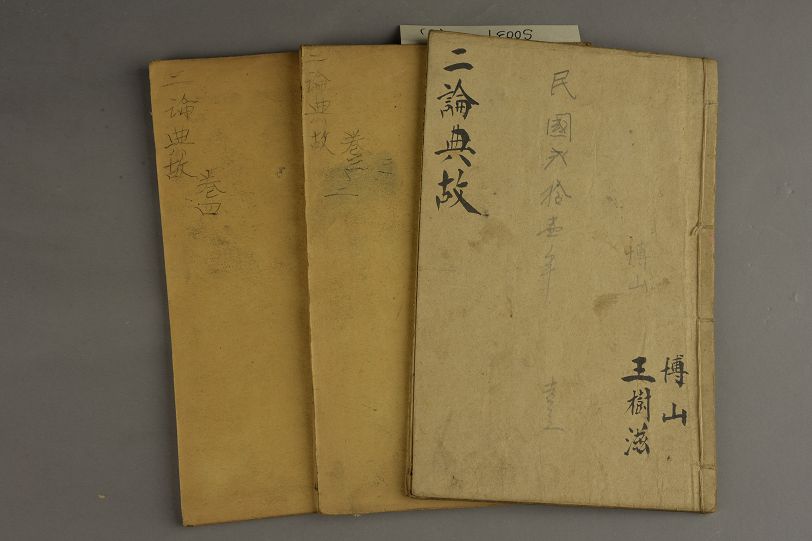 二論典故
民國弍拾壹年
博山
博山
王樹滋
二論典故
卷二
二論典故
卷四